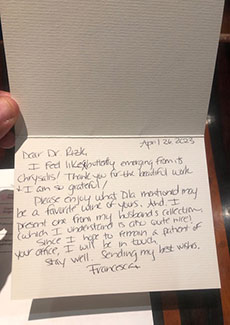 April 26, 2023
Dear Dr. Rizk,
I feel like a butterfly emerging from its
chrysalis! Thank you for the beautiful work
+ I am so grateful!
Please enjoy what Dla mentioned may
be a favorite wine of yours. And, I
present one from my husband's collection,
(which I understand is also quite nice!
Since I hope to remain a patient of
your office, I will be in touch.
Stay well. Sending my best wishes.
Francesca